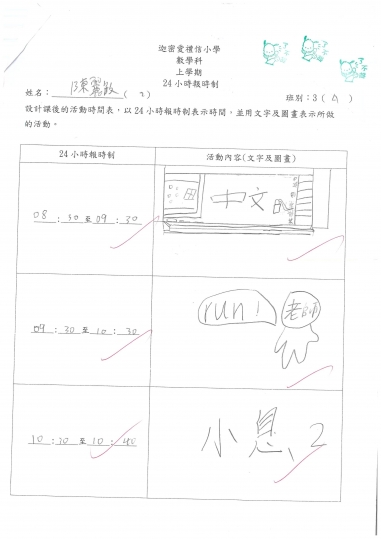 迦密愛禮信小學
數學科
上學期
24 小時報時制
姓名： 陳麗敏 ( 2 ) 班別：3 ( A )
設計課後的活動時間表，以 24 小時報時制表示時間，並用文字及圖畫表示所做
的活動。
24 小時報時制 活動內容(文字及圖畫)
中文
08 : 30 至 09 : 30
run! 老師
09 : 30 至 10 : 30
小息 2
10 : 30 至 10 : 40